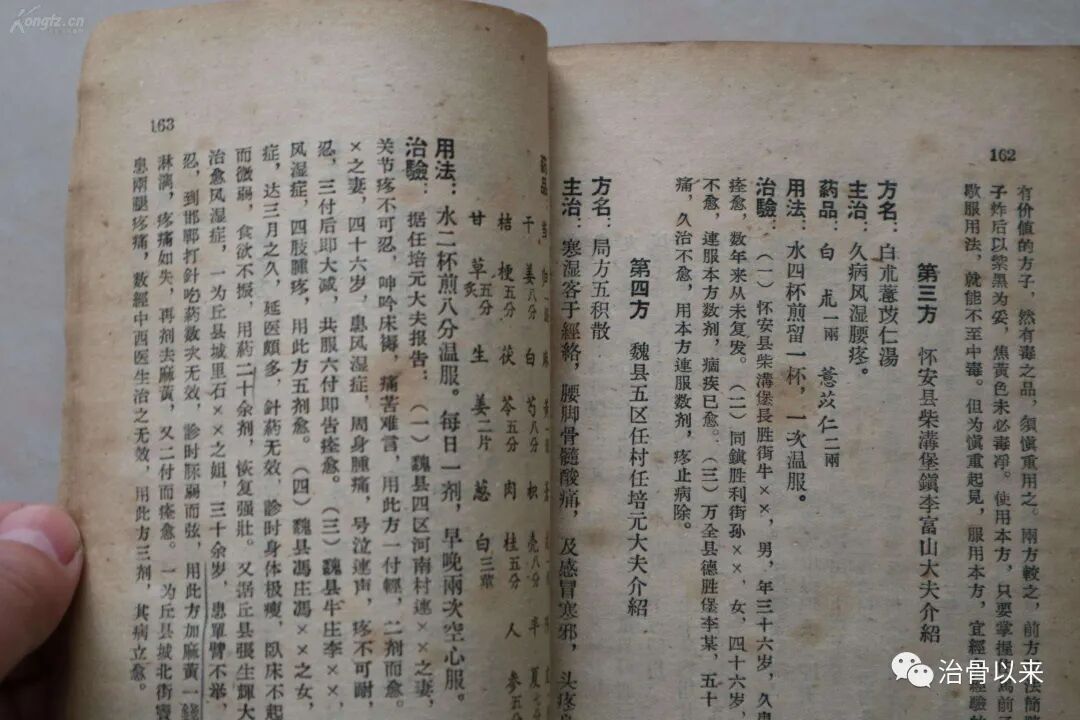 Kongfz.cn
162
有价值的方子，然有毒之品，须慎重用之。兩方較之，前方
子炸后以紫黑为妥，焦黄色未必毒淨。使用本方，只要掌握
歇服用法，就能不至中毒。但为慎重起見，服用本方，宜經
第三方　怀安县柴溝堡鎭李富山大夫介紹
方名：白朮薏苡仁湯
主治：久病风湿腰疼。
葯品：白　朮一兩　薏苡仁二兩
用法：水四杯煎留一杯，一次温服。
治驗：（一）怀安县柴溝堡長胜街牛××，男，年三十六岁，久患
痊愈，数年来从未复发。（二）同鎭胜利街孙××，女，四十六岁，
不愈，連服本方数剂，痼疾已愈。（三）万全县德胜堡李某，五十
痛，久治不愈，用本方連服数剂，疼止病除。
第四方　魏县五区任村任培元大夫介紹
方名：局方五积散
主治：寒湿客于經絡，腰脚骨髓酸痛，及感冒寒邪，头疼
163
葯品
干　姜八分　白　芍八分　枳　壳八分　半　夏七分
桔　梗五分　茯　苓五分　肉　桂五分　人　参五分
甘　草五分炙　生　姜二片　葱　白三莖
用法：水二杯煎八分温服。每日一剂，早晚兩次空心服。
治驗：据任培元大夫报告：（一）魏县四区河南村連××之妻，
关节疼不可忍，呻吟床褥，痛苦难言，用此方一付輕，二剂而愈。
×之妻，四十六岁，患风湿症，周身腫痛，号泣連声，疼不可耐，
忍，三付后即大减，共服六付即告痊愈。（三）魏县牛庄李××，
风湿症，四肢腫疼，用此方五剂愈。（四）魏县馮庄馮××之女，
症，达三月之久，延医頗多，針葯无效，診时身体极瘦，臥床不起
而微弱，食欲不振，用葯二十余剂，恢复强壯。又据丘县張生輝大
治愈风湿症，一为丘县城里石××之姐，三十余岁，患單臂不举，
忍，到邯鄲打針吃葯数次无效，診时脉弱而弦，用此方加麻黄一錢
淋漓，疼痛如失，再剂去麻黄，又二付而痊愈。一为丘县城北街竇
患兩腿疼痛，数經中西医生治之无效，用此方三剂，其病立愈。
治骨以来